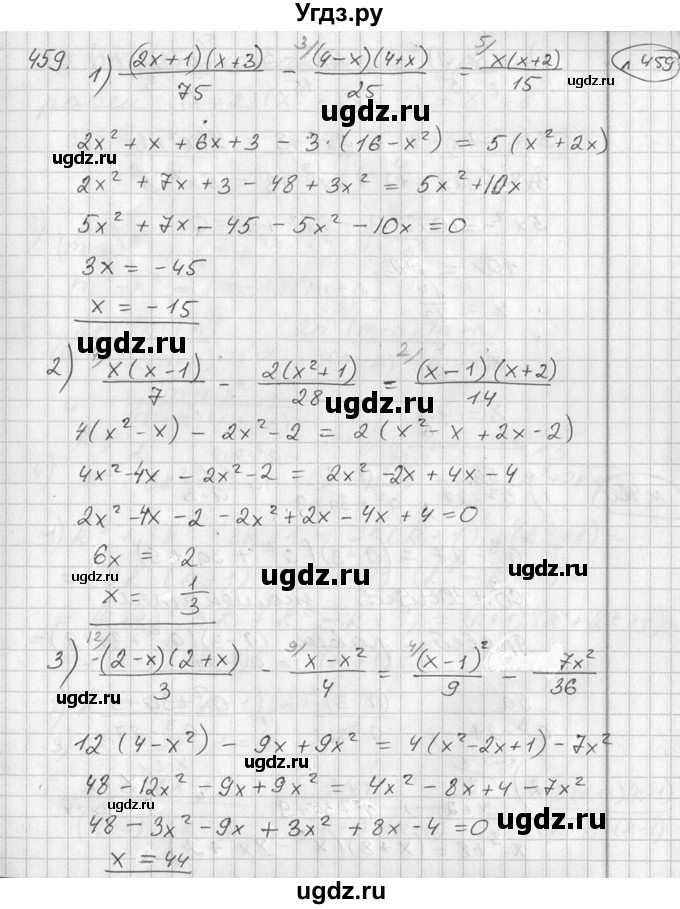 Угдз.ру
459. 1) (2x+1)(x+3)/75 - 3/ (4-x)(4+x)/25 = 5/ x(x+2)/15 n 459
ugdz.ru ugdz.ru
ugdz.ru
2x² + x + 6x + 3 - 3·(16-x²) = 5(x²+2x)
ugdz.ru
2x² + 7x + 3 - 48 + 3x² = 5x²+10x
5x² + 7x - 45 - 5x² - 10x = 0
3x = -45
x = -15
ugdz.ru ugdz.ru
ugdz.ru
2) x(x-1)/7 - 2(x²+1)/28 = 2/ (x-1)(x+2)/14
ugdz.ru
4(x²-x) - 2x²-2 = 2(x²-x+2x-2)
4x²-4x - 2x²-2 = 2x²-2x+4x-4
2x²-4x-2-2x²+2x-4x+4=0
6x = 2
ugdz.ru ugdz.ru ugdz.ru
x = 1/3
3) 12/ -(2-x)(2+x)/3 - 9/ x-x²/4 = 4/ (x-1)²/9 - 7x²/36
ugdz.ru ugdz.ru
12(4-x²) - 9x+9x² = 4(x²-2x+1)-7x²
ugdz.ru
48-12x²-9x+9x² = 4x²-8x+4-7x²
ugdz.ru
48-3x²-9x+3x²+8x-4=0
ugdz.ru
x = 44
ugdz.ru